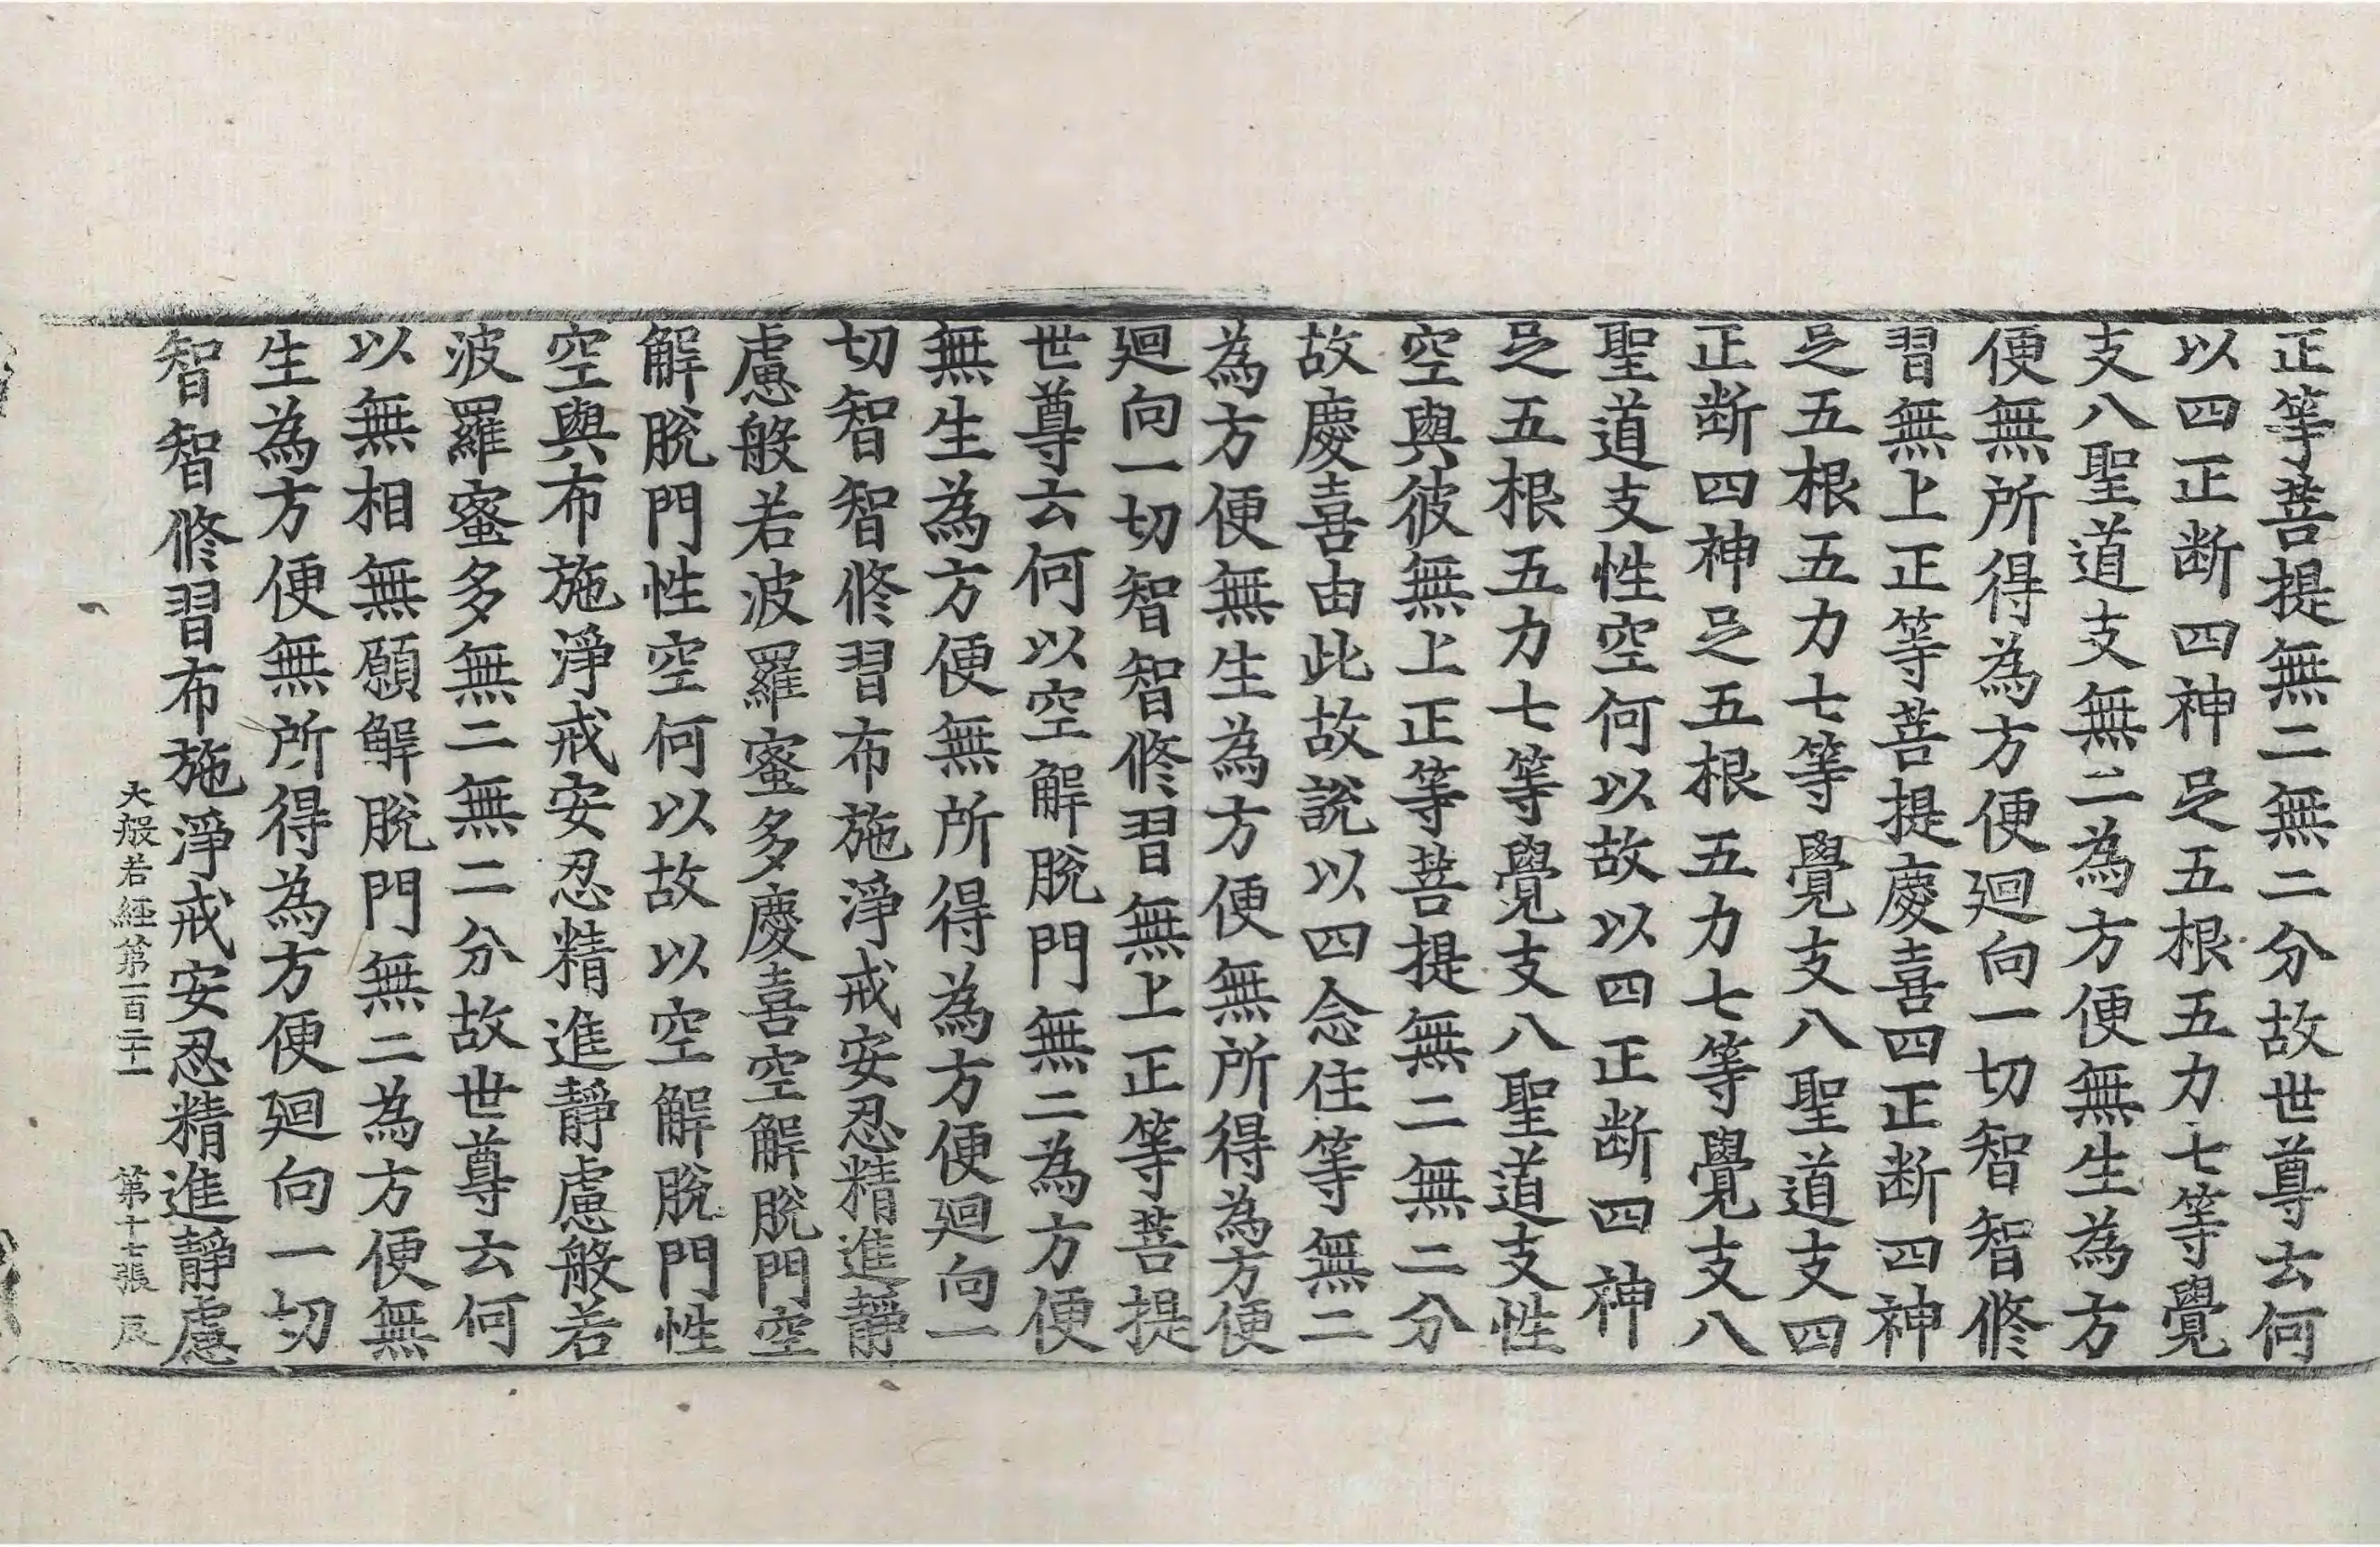 正等菩提無二無二分故世尊云何
以四正断四神足五根五力七等覺
支八聖道支無二為方便無生為方
便無所得為方便迴向一切智智修
習無上正等菩提慶喜四正断四神
足五根五力七等覺支八聖道支四
正断四神足五根五力七等覺支八
聖道支性空何以故以四正断四神
足五根五力七等覺支八聖道支性
空與彼無上正等菩提無二無二分
故慶喜由此故說以四念住等無二
為方便無生為方便無所得為方便
迴向一切智智修習無上正等菩提
世尊云何以空解脫門無二為方便
無生為方便無所得為方便迴向一
切智智修習布施淨戒安忍精進靜
慮般若波羅蜜多慶喜空解脫門空
解脫門性空何以故以空解脫門性
空與布施淨戒安忍精進靜慮般若
波羅蜜多無二無二分故世尊云何
以無相無願解脫門無二為方便無
生為方便無所得為方便迴向一切
智智修習布施淨戒安忍精進靜慮
大般若經第一百二十一 第十七張 辰